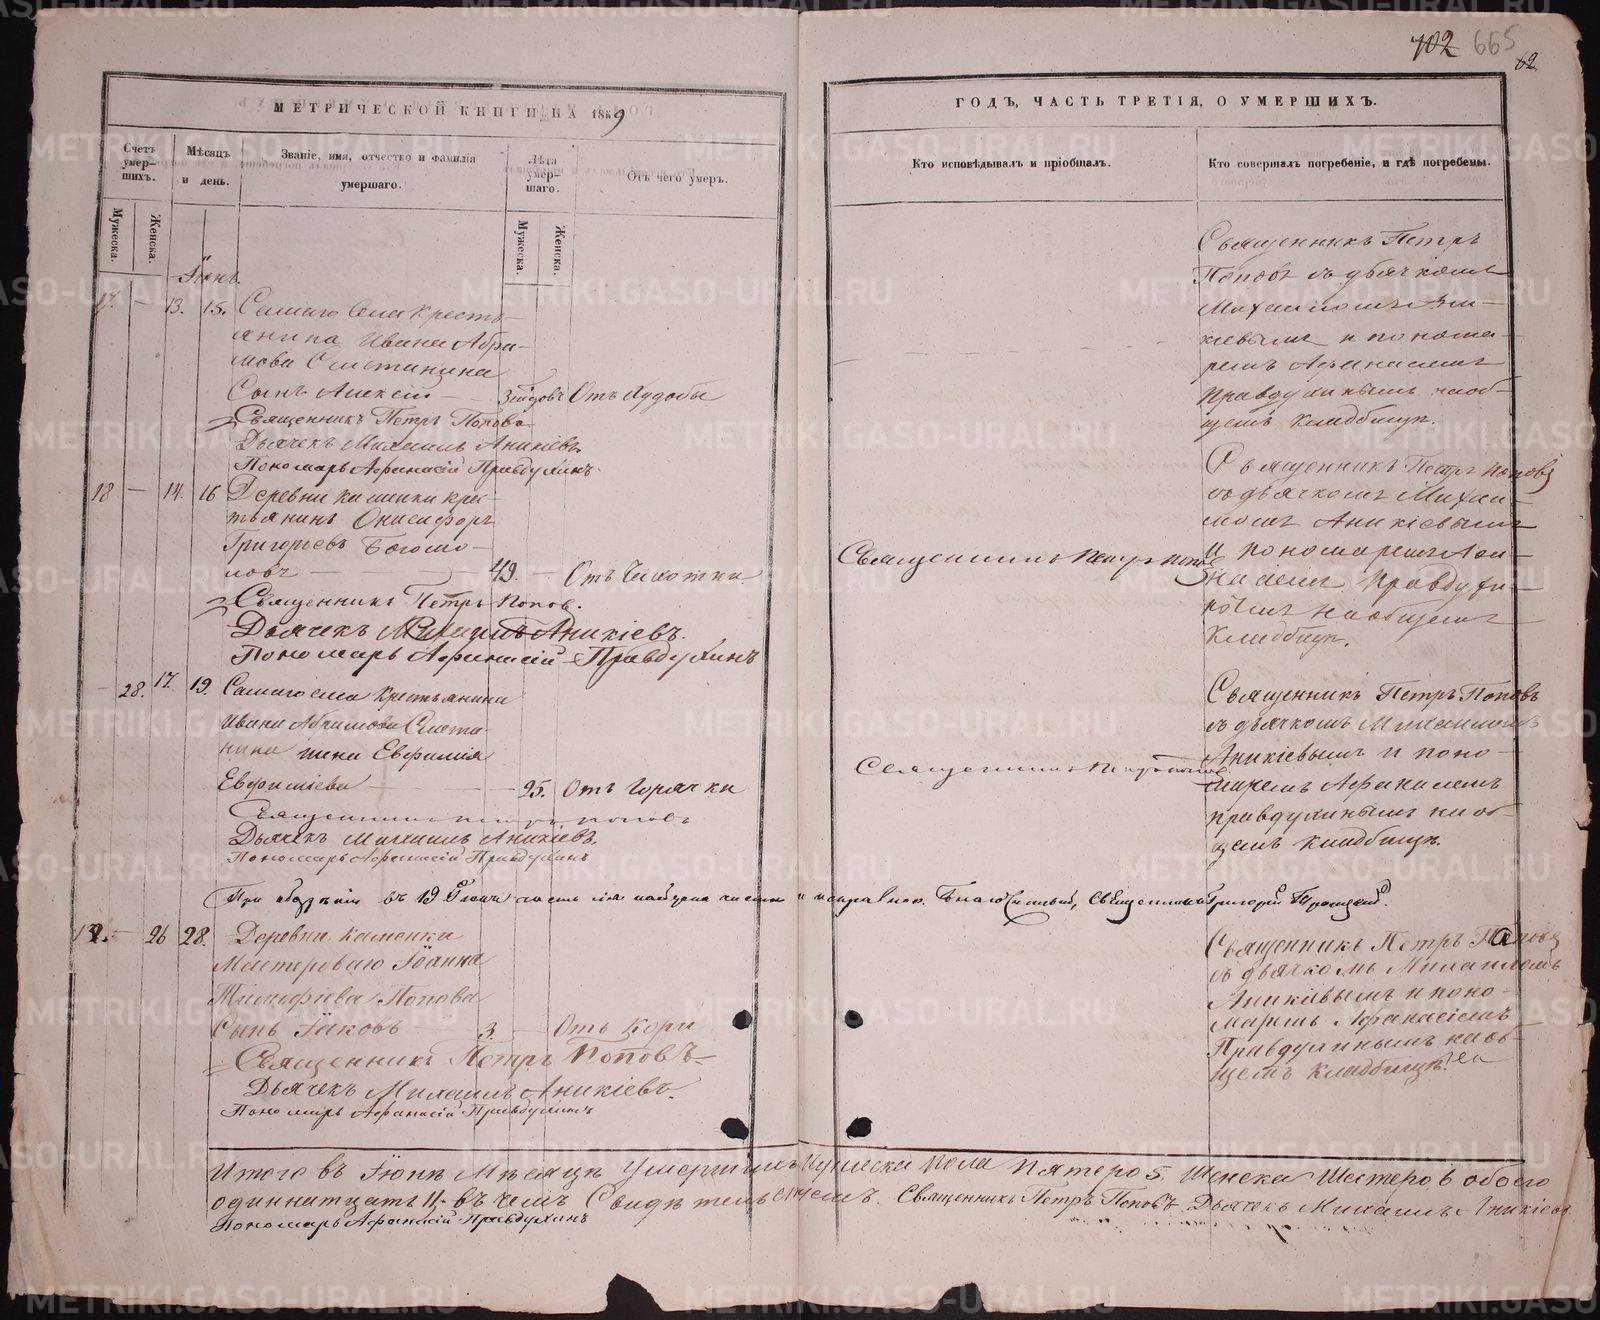 702 665
62
МЕТРИЧЕСКОЙ КНИГИ НА 1859
ГОДЪ, ЧАСТЬ ТРЕТІЯ, О УМЕРШИХЪ.
Счетъ умер-
шихъ.
Мужеска.
Женска.
Мѣсяцъ
и день.
Званіе, имя, отчество и фамилія
умершаго.
Лѣта
умер-
шаго.
Мужеска.
Женска.
Отъ чего умеръ.
Кто исповѣдывалъ и пріобщалъ.
Кто совершалъ погребеніе, и гдѣ погребены.
Іюнь.
17. — 13. 15. Самаго села кресть-
янина Ивана Абра-
мова Сметанина
Сынъ Алексѣй — Отъ Худобы
Священникъ Петръ Поповъ
Дьячекъ Михаилъ Аникіевъ.
Пономарь Афанасій Правдухинъ.
Священникъ Петръ
Поповъ съ дьячкомъ
Михаиломъ Ани-
кіевымъ и понома-
ремъ Афанасіемъ
Правдухинымъ на об-
щемъ кладбищѣ.
18 — 14. 16 Деревни Каменки кре-
тьянинъ Онисифоръ
Григорьевъ Богомо-
ловъ — 49. — Отъ Чихотки
Священникъ Петръ Попов.
Дьячекъ Михаилъ Аникіевъ.
Пономарь Афанасій Правдухинъ
Священникъ Петръ Поповъ
Священникъ Петръ Поповъ
съ дьячкомъ Михаи-
ломъ Аникіевымъ
и пономаремъ Афа-
насіемъ Правдухи-
нымъ на общемъ
Кладбищѣ.
— 28. 17. 19. Самаго села Крестьянина
Ивана Абрамова Смета-
нина жена Евфимія
Евфиміева — 25. Отъ Горячки
Священникъ Петръ Поповъ
Дьячекъ Михаилъ Аникіевъ.
Пономарь Афанасій Правдухинъ
Священникъ Петръ Поповъ.
Священникъ Петръ Поповъ
съ дьячкомъ Михаиломъ
Аникіевымъ и поно-
маремъ Афанасіемъ
Правдухинымъ на об-
щемъ кладбищѣ.
При обозрѣніи въ 19 Іюня часть сія найдена чистою и исправною. Благочинный, Священникъ Григорій
19. — 26 28. Деревни Каменки
Мастероваго Іоанна
Тимофѣева Попова
Сынъ Іаковъ — 3. — Отъ Кори
Священникъ Петръ Поповъ
Дьячекъ Михаилъ Аникіевъ.
Пономарь Афанасій Правдухинъ
Священникъ Петръ Поповъ
съ дьячкомъ Михаиломъ
Аникіевымъ и поно-
маремъ Афанасіемъ
Правдухинымъ на об-
щемъ кладбищѣ.
Итого въ Іюнѣ Мѣсяцѣ Умершихъ Мужеска Пола Пятеро 5, Женска Шестеро 6 обоего
одиннатцать 11. въ чемъ Свидѣтельствуемъ. Священникъ Петръ Поповъ Дьячекъ Михаилъ Аникіевъ
Пономарь Афанасій Правдухинъ
METRIKI.GASO-URAL.RU